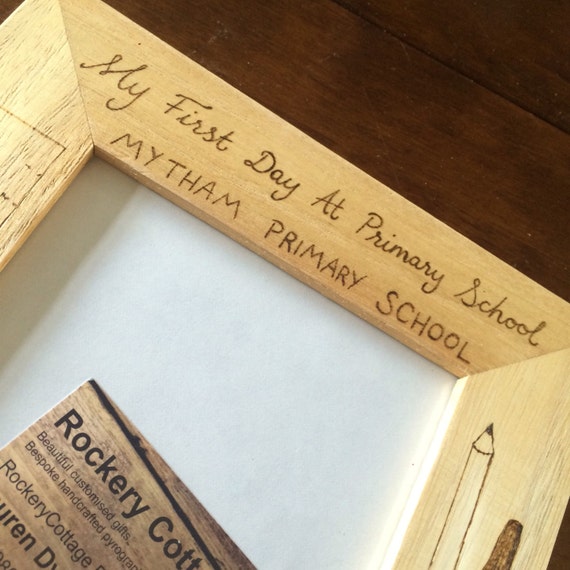 My First Day At Primary School
MYTHAM PRIMARY SCHOOL
Rockery Cott
Beautiful customised gifts.
Bespoke handcrafted pyrogra
RockeryCottage
uren Dy